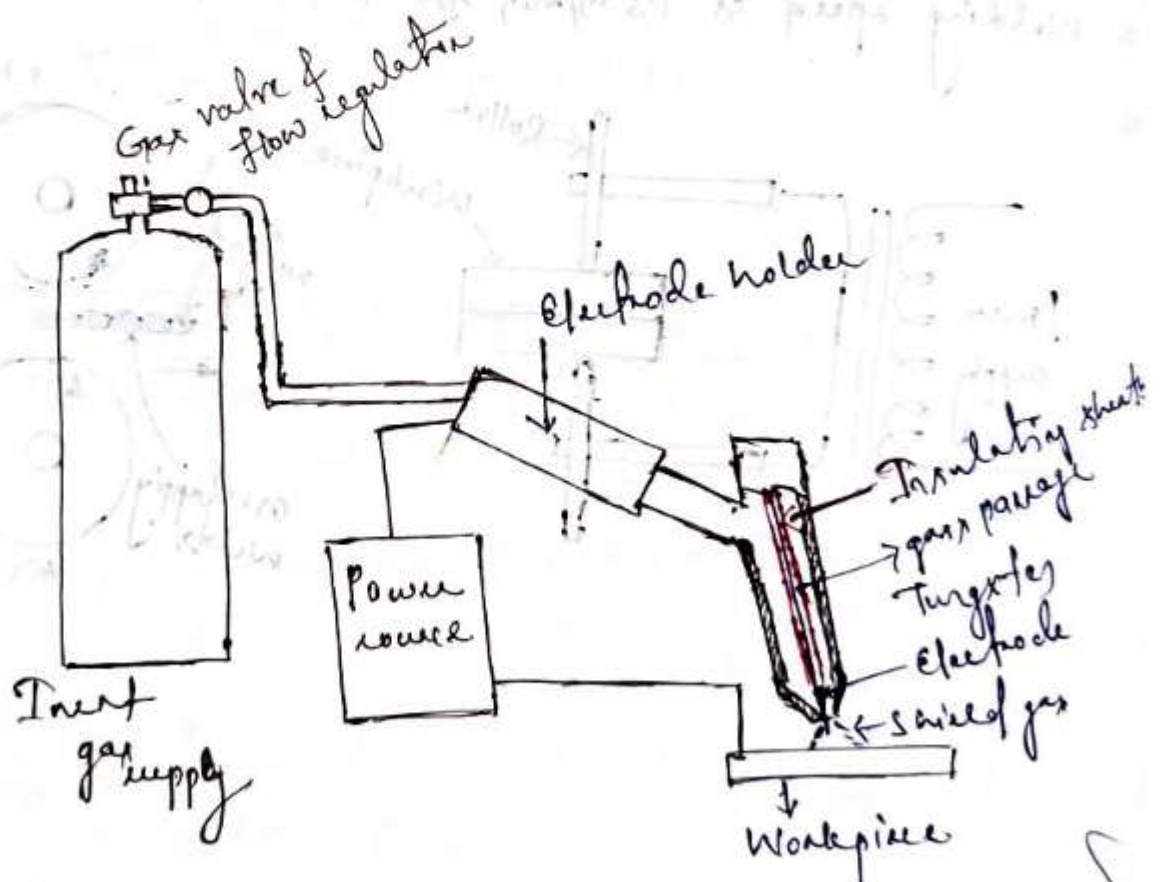 Gas valve &
flow regulation
Electrode holder
Insulating sheath
gass passage
Tungsten
Electrode
shield gas
Power
source
Inert
gas
supply
Workpiece